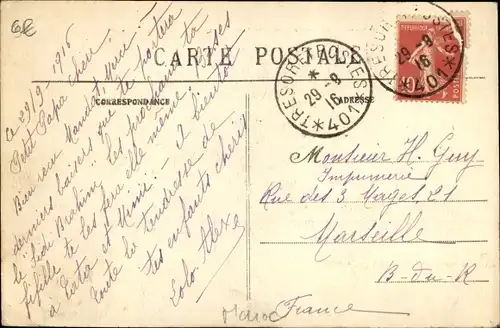 6€
CARTE POSTALE
CORRESPONDANCE
ADRESSE
TRESOR ET POSTES
* 29-8 16 *
* 401 *
TRESOR ET POSTES
29-8
16
* 401 *
POSTES
10
Ce 29/9-1916
Petit Papa chéri
Bien reçu Mandat, Merci! -
derniers baisers que te portera
le "Sidi Brahim" les prochains ta
fifille te les fera elle même. Bises
à Tata et Mimi - A bientôt
toute la tendresse de
tes enfants chéris
Lolo Alexe
Monsieur H. Guy
Imprimerie
Rue des 3 Mages 21
Marseille
B-du-R
France
Maroc